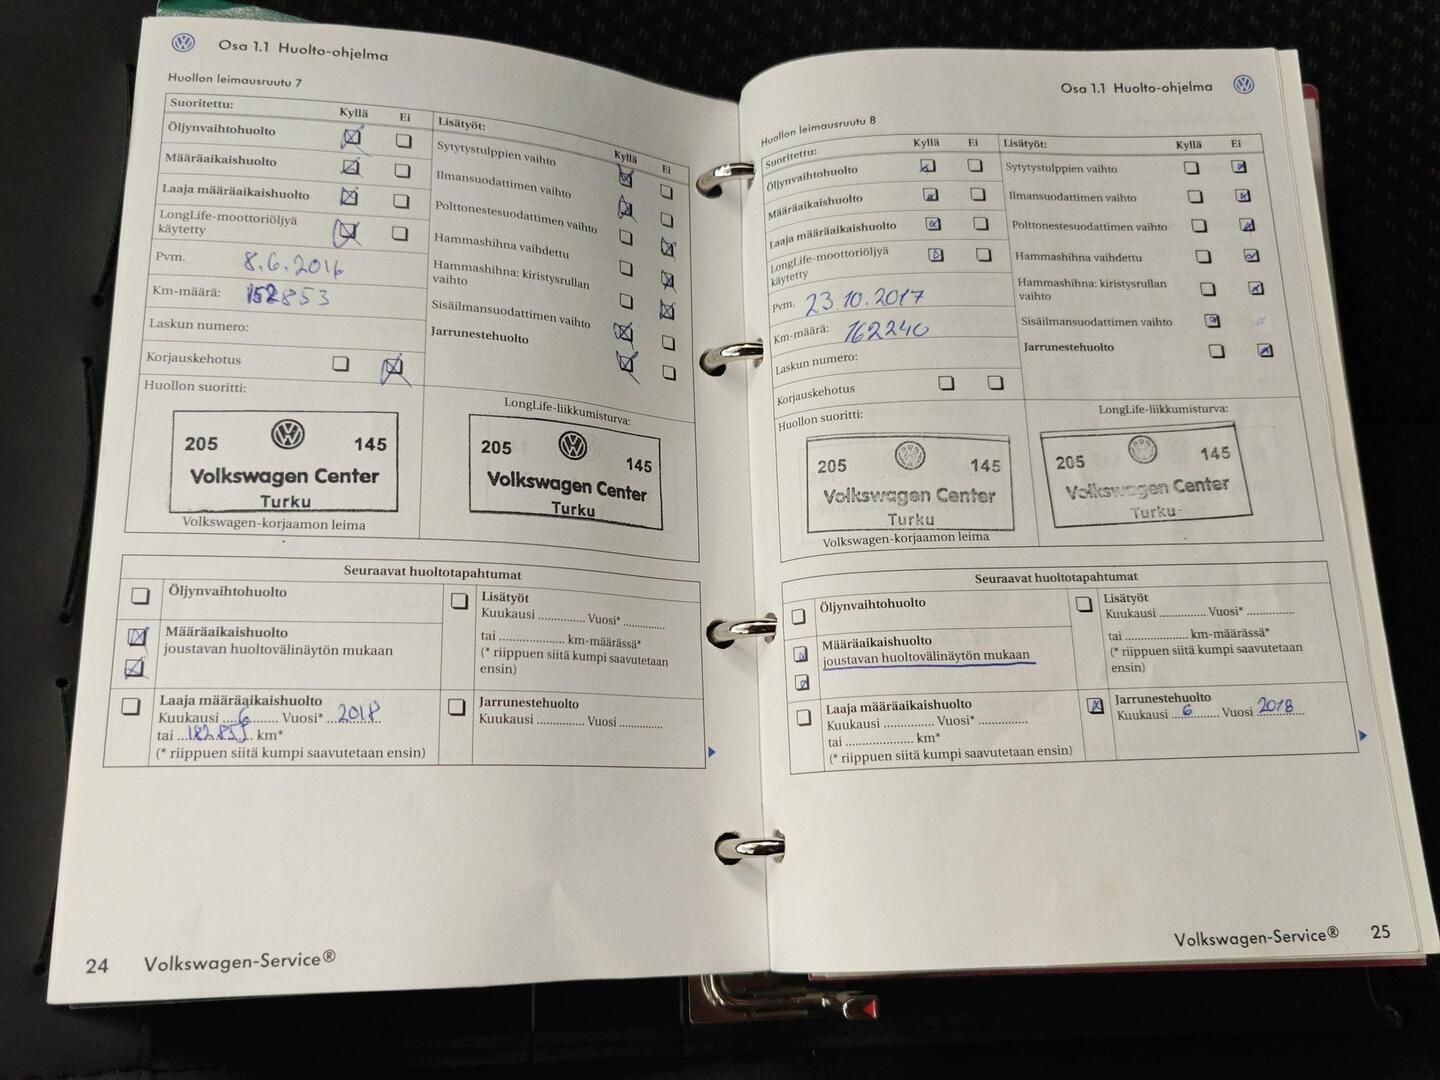 Osa 1.1 Huolto-ohjelma
Huollon leimausruutu 7
Suoritettu: Kyllä Ei
Öljynvaihtohuolto
Määräaikaishuolto
Laaja määräaikaishuolto
LongLife-moottoriöljyä
käytetty
Pvm. 8.6.2016
Km-määrä: 152853
Laskun numero:
Korjauskehotus
Lisätyöt: Kyllä Ei
Sytytystulppien vaihto
Ilmansuodattimen vaihto
Polttonestesuodattimen vaihto
Hammashihna vaihdettu
Hammashihna: kiristysrullan
vaihto
Sisäilmansuodattimen vaihto
Jarrunestehuolto
Huollon suoritti:
205 145
Volkswagen Center
Turku
Volkswagen-korjaamon leima
LongLife-liikkumisturva:
205 145
Volkswagen Center
Turku
Seuraavat huoltotapahtumat
Öljynvaihtohuolto
Määräaikaishuolto
joustavan huoltovälinäytön mukaan
Laaja määräaikaishuolto
Kuukausi ....6......... Vuosi* ..2018..
tai ..182855.. km*
(* riippuen siitä kumpi saavutetaan ensin)
Lisätyöt
Kuukausi .............. Vuosi* ..............
tai .................... km-määrässä*
(* riippuen siitä kumpi saavutetaan
ensin)
Jarrunestehuolto
Kuukausi ............... Vuosi .............
24 Volkswagen-Service®
Osa 1.1 Huolto-ohjelma
Huollon leimausruutu 8
Suoritettu: Kyllä Ei
Öljynvaihtohuolto
Määräaikaishuolto
Laaja määräaikaishuolto
LongLife-moottoriöljyä
käytetty
Pvm. 23.10.2017
Km-määrä: 162240
Laskun numero:
Korjauskehotus
Lisätyöt: Kyllä Ei
Sytytystulppien vaihto
Ilmansuodattimen vaihto
Polttonestesuodattimen vaihto
Hammashihna vaihdettu
Hammashihna: kiristysrullan
vaihto
Sisäilmansuodattimen vaihto
Jarrunestehuolto
Huollon suoritti:
205 145
Volkswagen Center
Turku
Volkswagen-korjaamon leima
LongLife-liikkumisturva:
205 145
Volkswagen Center
Turku
Seuraavat huoltotapahtumat
Öljynvaihtohuolto
Määräaikaishuolto
joustavan huoltovälinäytön mukaan
Laaja määräaikaishuolto
Kuukausi ............... Vuosi* ..............
tai .................... km*
(* riippuen siitä kumpi saavutetaan ensin)
Lisätyöt
Kuukausi .............. Vuosi* ..............
tai .................... km-määrässä*
(* riippuen siitä kumpi saavutetaan
ensin)
Jarrunestehuolto
Kuukausi ...6......... Vuosi 2018
Volkswagen-Service® 25